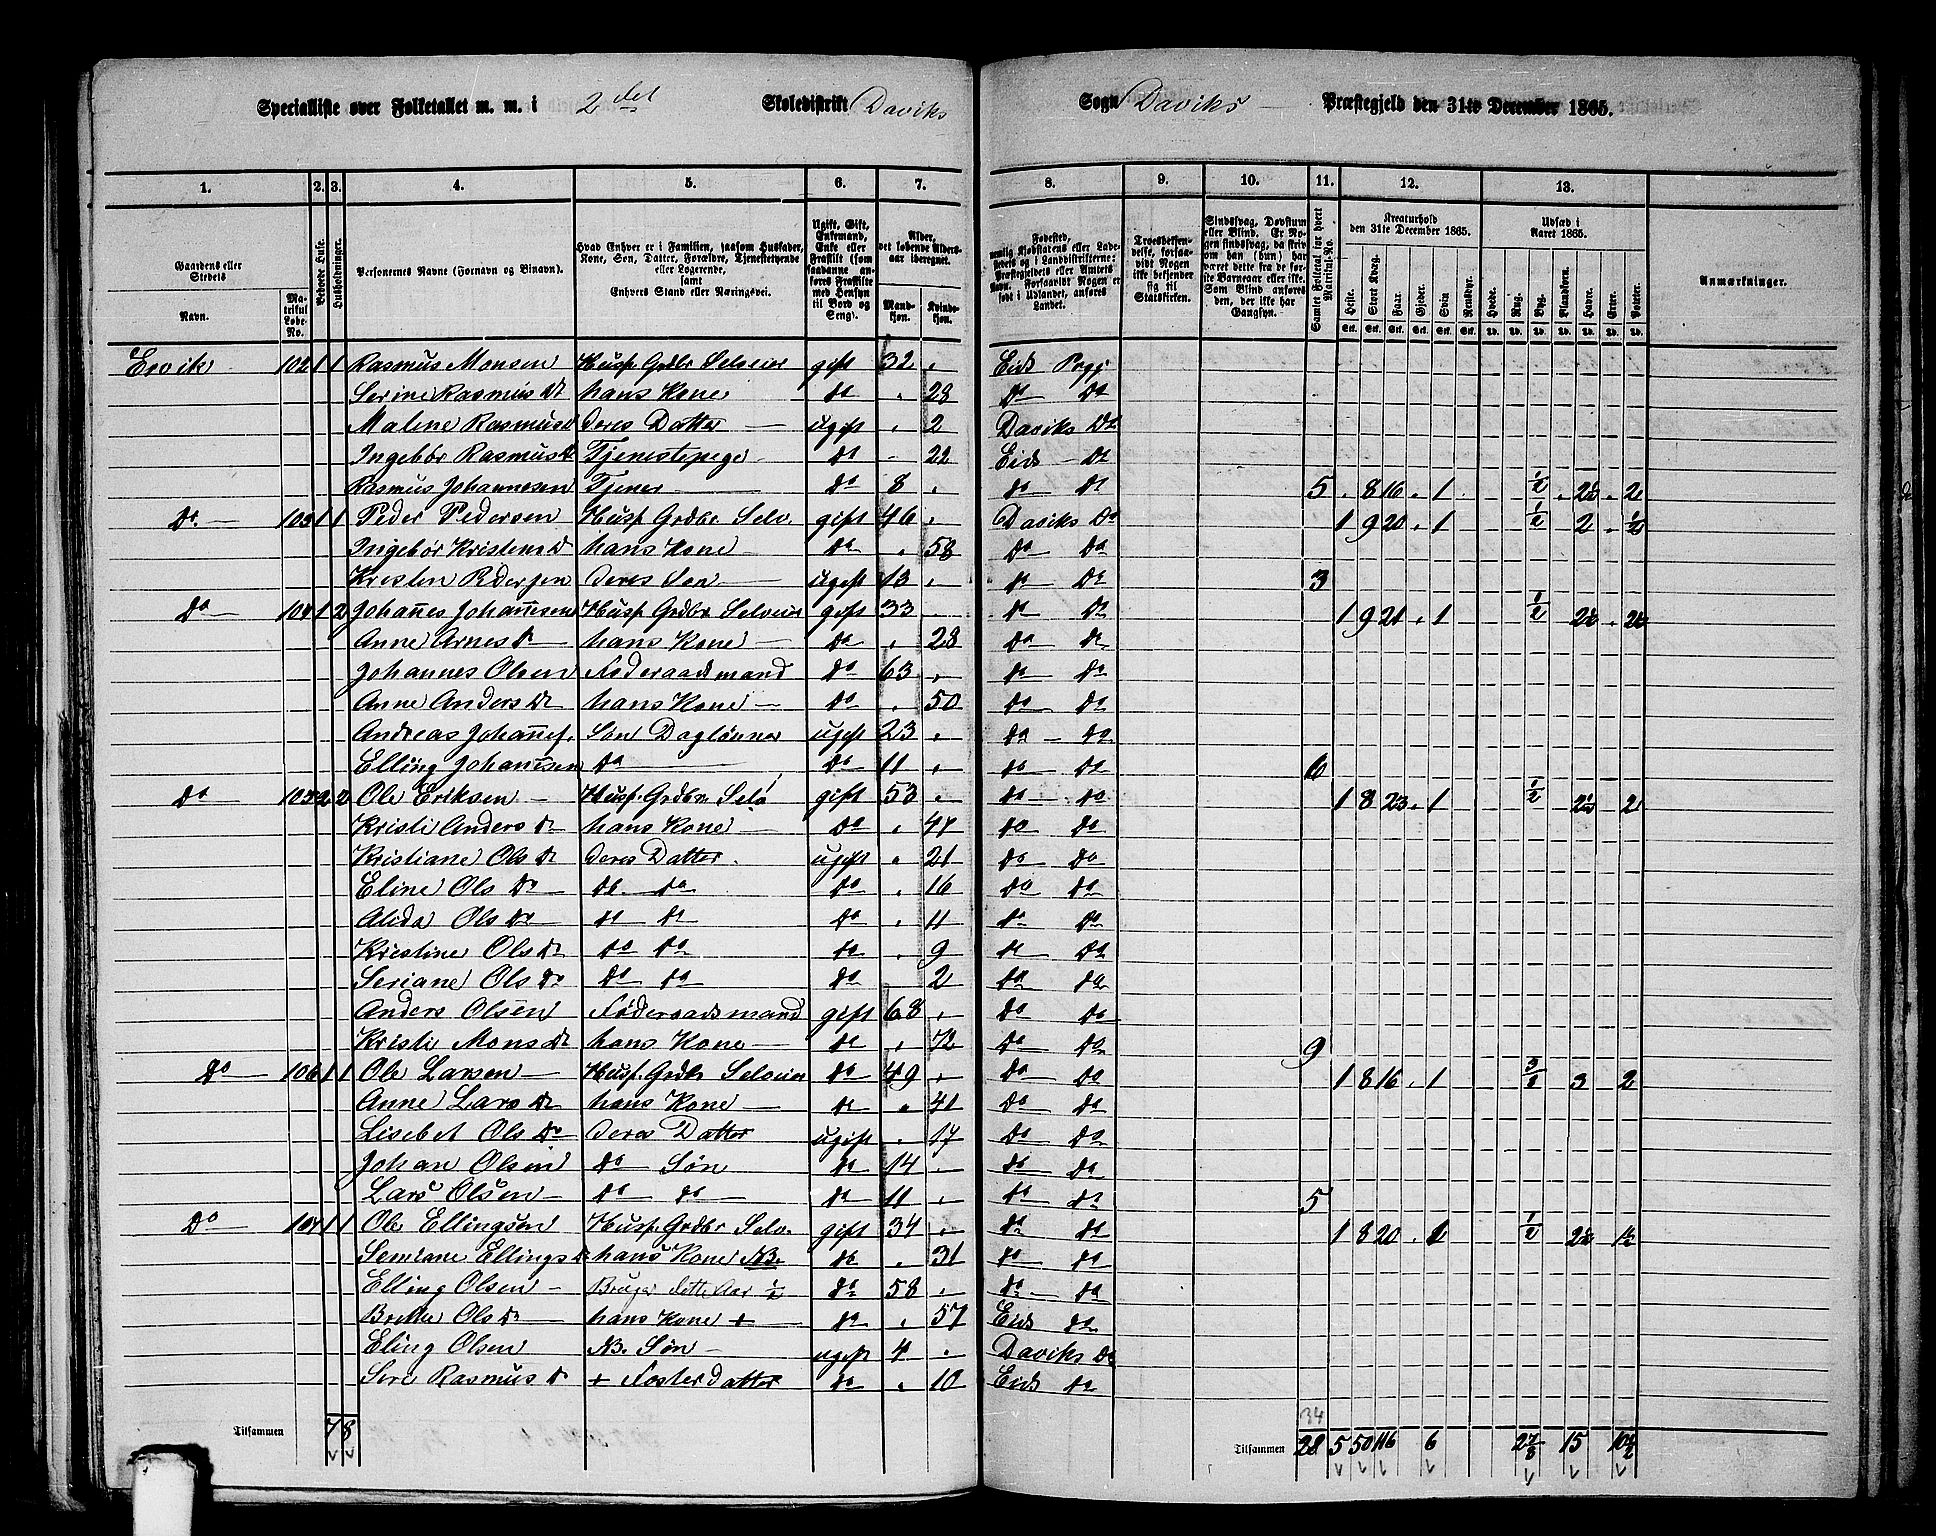 Specialliste over Folketallet m. m. i 2det Skoledistrikt Daviks Sogn Daviks Præstegjeld den 31te December 1865.
1. 2. 3. 4. 5. 6. 7. 8. 9. 10. 11. 12. 13.
Gaardens eller Stedets
Navn. Matrikul Løbe-No.
Beboede Huse.
Husholdninger.
Personernes Navne (Fornavn og Binavn).
Hvad Enhver er i Familien, saasom Husfader, Kone, Søn, Datter, Forældre, Tjenestetyende eller Logerende,
samt
Enhvers Stand eller Næringsvei.
Ugift, Gift, Enkemand, Enke eller Fraskilt (som saadanne anføres Fraskilte med Hensyn til Bord og Seng).
Alder, det løbende Alders-aar iberegnet.
Mandkjøn. Kvindekjøn.
Fødested,
Troesbekjendelse, forsaavidt Nogen ikke bekjender sig til Statskirken.
Sindssvag, Døvstum eller Blind.
Samlet Folketal for hvert Matrikul-No.
Kreaturhold den 31te December 1865.
Heste. Stort Kvæg. Faar. Gjeder. Svin Rensdyr.
Udsæd i Aaret 1865.
Hvede. Rug. Byg. Blandkorn. Havre. Erter. Poteter.
Anmærkninger.
Ervik 102 1 1 Rasmus Monsen Husf. Grdbr Selveier gift 32 Eids Prgj
Serine Rasmus Dr hans Kone do 28 do do
Malene Rasmusd deres Datter ugift 2 Daviks Do
Ingebør Rasmusd Tjenestepige do 22 Eids do
Rasmus Johannesen Tjener do 8 do do 5 8 16 1 1/2 2
Do 103 1 1 Peder Pedersen Husf Grdbr Selv. gift 46 Daviks Do 1 9 20 1 1/2 2 1/2
Ingebør Kristens D hans Kone do 58 do do
Kristen Pedersen deres Søn ugift 13 do do 3
Do 104 1 2 Johannes Johannesen Husf Grdbr Selveier gift 33 do do 1 9 21 1 1/2
Anne Arnes Dr hans Kone do 28 do do
Johannes Olsen Føderaadsmand do 63 do do
Anne Anders Dr hans Kone do 50 do do
Andreas Johannes. Søn Daglønner ugift 23 do do
Elling Johannesen do do 11 do do 6
Do 105 2 2 Ole Eriksen Husf. Grdbr. Selv gift 53 do do 1 8 23 1 1/2 2
Kristi Anders Dr hans Kone do 47 do do
Kristiane Ols Dr deres Datter ugift 21 do do
Eline Ols Dr do do do 16 do do
Alida Ols Dr do do do 11 do do
Kristine Ols Dr do do do 9 do do
Seriane Ols Dr do do do 2 do do
Anders Olsen Føderaadsmand gift 68 do do
Kristi Mons Dr hans Kone do 72 do do 9
Do 106 1 1 Ole Larsen Husf. Grdbr Selveier do 49 do do 1 8 16 1 3 2
Anne Lars Dr hans Kone do 41 do do
Lisebet Ols Dr deres Datter ugift 17 do do
Johan Olsen do Søn do 14 do do
Lars Olsen do do do 11 do do 5
Do 107 1 1 Ole Ellingsen Husf. Grdbr Selv. gift 34 do do 1 8 20 1 1/2
Semiane Ellings Dr hans Kone NB. do 31 do do
Elling Olsen Bruger dette Aar 1/2 do 58 do do
Brithe Ols Dr hans Kone + do 57 Eids do
Eling Olsen NB. Søn ugift 4 Daviks Do
Seri Rasmus Dr + Fosterdatter do 10 Eids do
Tilsammen 7 8
34
Tilsammen 28 5 50 116 6 2 7/8 15